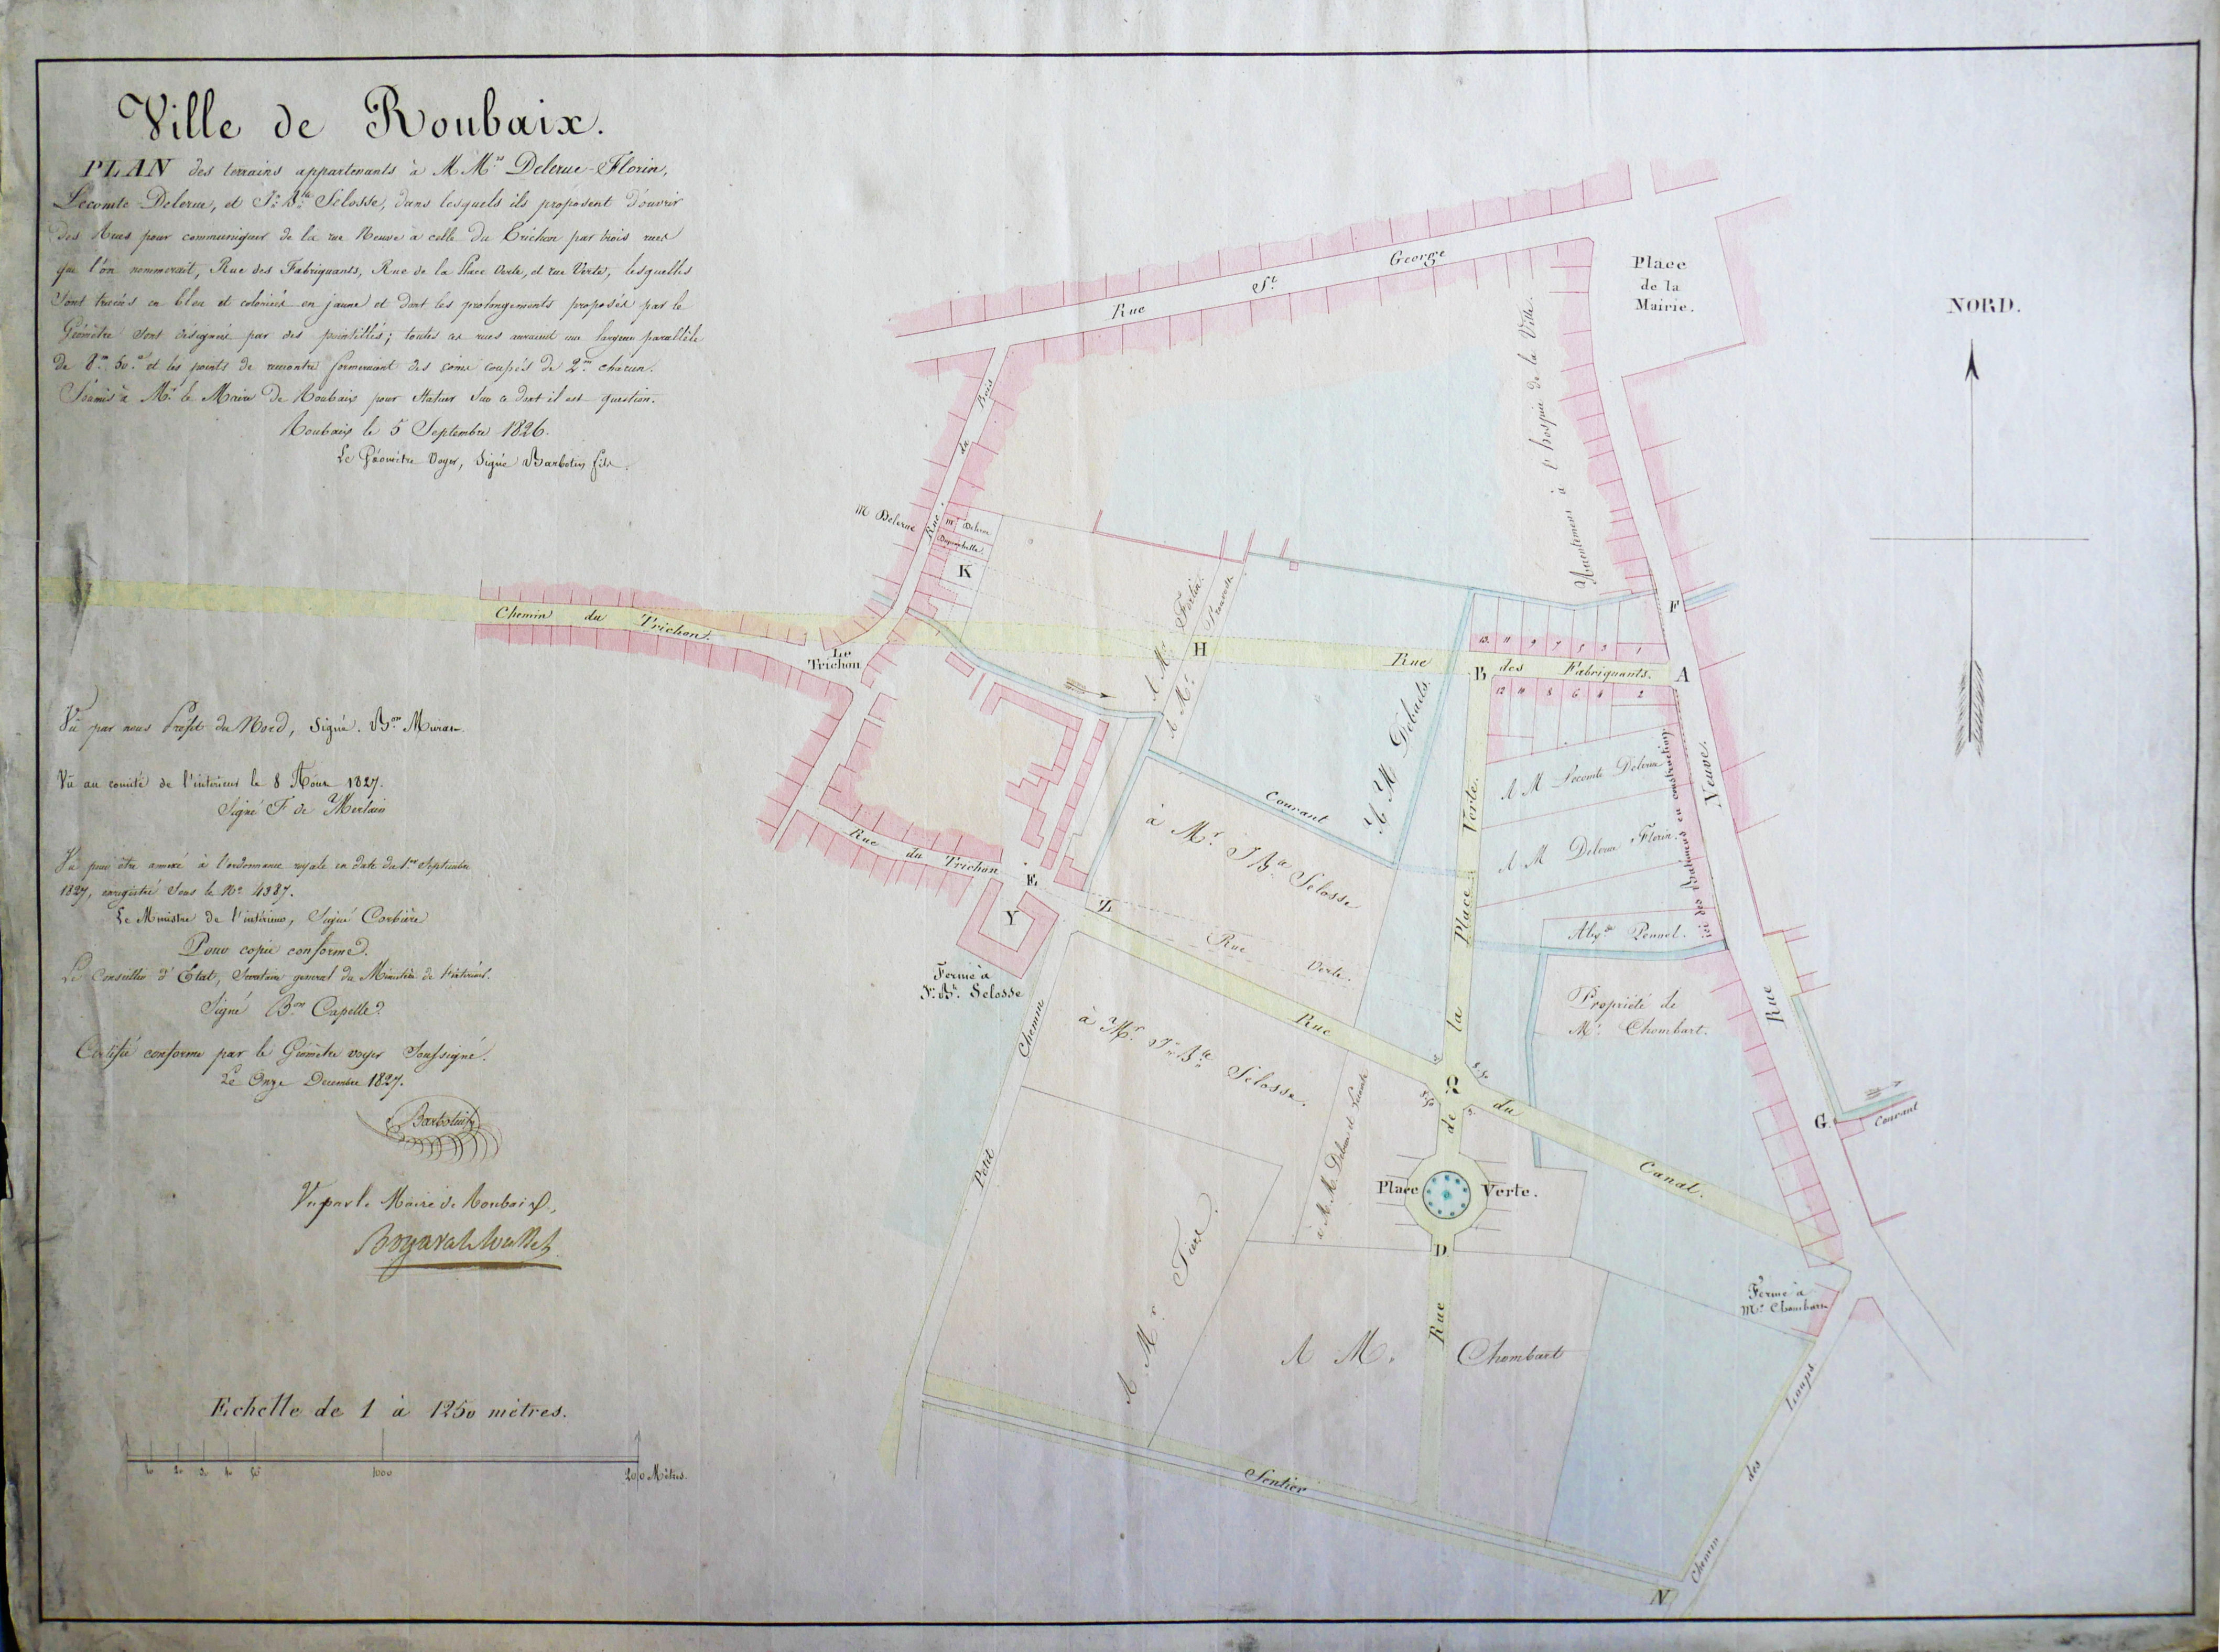 Ville de Roubaix.
PLAN des terrains appartenants à M Mrs Delerue-Florin,
Lecomte-Delerue, et Jn Bte Selosse, dans lesquels ils proposent d'ouvrir
des Rues pour communiquer de la rue Neuve à celle du Trichon par trois rues
que l'on nommerait, Rue des Fabriquants, Rue de la Place Verte, et rue Verte, lesquelles
sont tracées en bleu et coloriées en jaune et dont les prolongements proposés par le
Géomètre sont désignés par des pointillés; toutes ces rues auraient une largeur parallèle
de 8m 50c et les points de rencontre formeraient des coins coupés de 2m chacun.
Soumis à Mr le Maire de Roubaix pour statuer sur ce dont il est question.
Roubaix le 5 Septembre 1826.
Le Géomètre Voyer, Signé Barbotin fils.
Vû par nous Préfet du Nord, Signé. Bon Murat
Vû au comité de l'intérieur le 8 Aout 1827.
Signé F de
Vû pour être annexé à l'ordonnance royale en date du 1er Septembre
1827, enregistré sous le No 4387.
Le Ministre de l'intérieur, Signé Corbière
Pour copie conforme.
Le Conseiller d'Etat, Secrétaire général du Ministère de l'intérieur.
Signé Bon Capelle
Certifié conforme par le Géomètre voyer Soussigné.
Le Onze Decembre 1827.
Barbotin
Vu par le Maire de Roubaix,
Echelle de 1 à 1250 mètres.
10 20 30 40 50 1000 200 Mètres.
NORD.
Place
de la
Mairie.
Rue St George
Rue du Bois
M Delerue
Mr Delerue
K
Appartements à l'hospice de la Ville.
Chemin du Trichon.
Le
Trichon
A Mr Florin
A Mr Prouvost
H
Rue des Fabriquants.
B
A
F
13. 11 9 7 5 3 1
12 10 8 6 4 2
A M Debails
A M Lecomte Delerue
A M Delerue Florin.
Ici des Batiments en construction
Rue Neuve.
Courant
à Mr J Bte Selosse
Rue de la Place Verte.
Rue du Trichon
E
Y
Z
Rue Verte.
Pennel.
Ferme à
Jn Bte Selosse
Propriété de
Mr Chombart.
Petit Chemin
à Mr Jn Bte Selosse.
Rue du Canal.
à M M. Delerue et Lecomte
G.
Courant
Place Verte.
D
Rue
Ferme à
Mr Chombart
A Mr
A M. Chombart
Sentier
Chemin des Loups
N